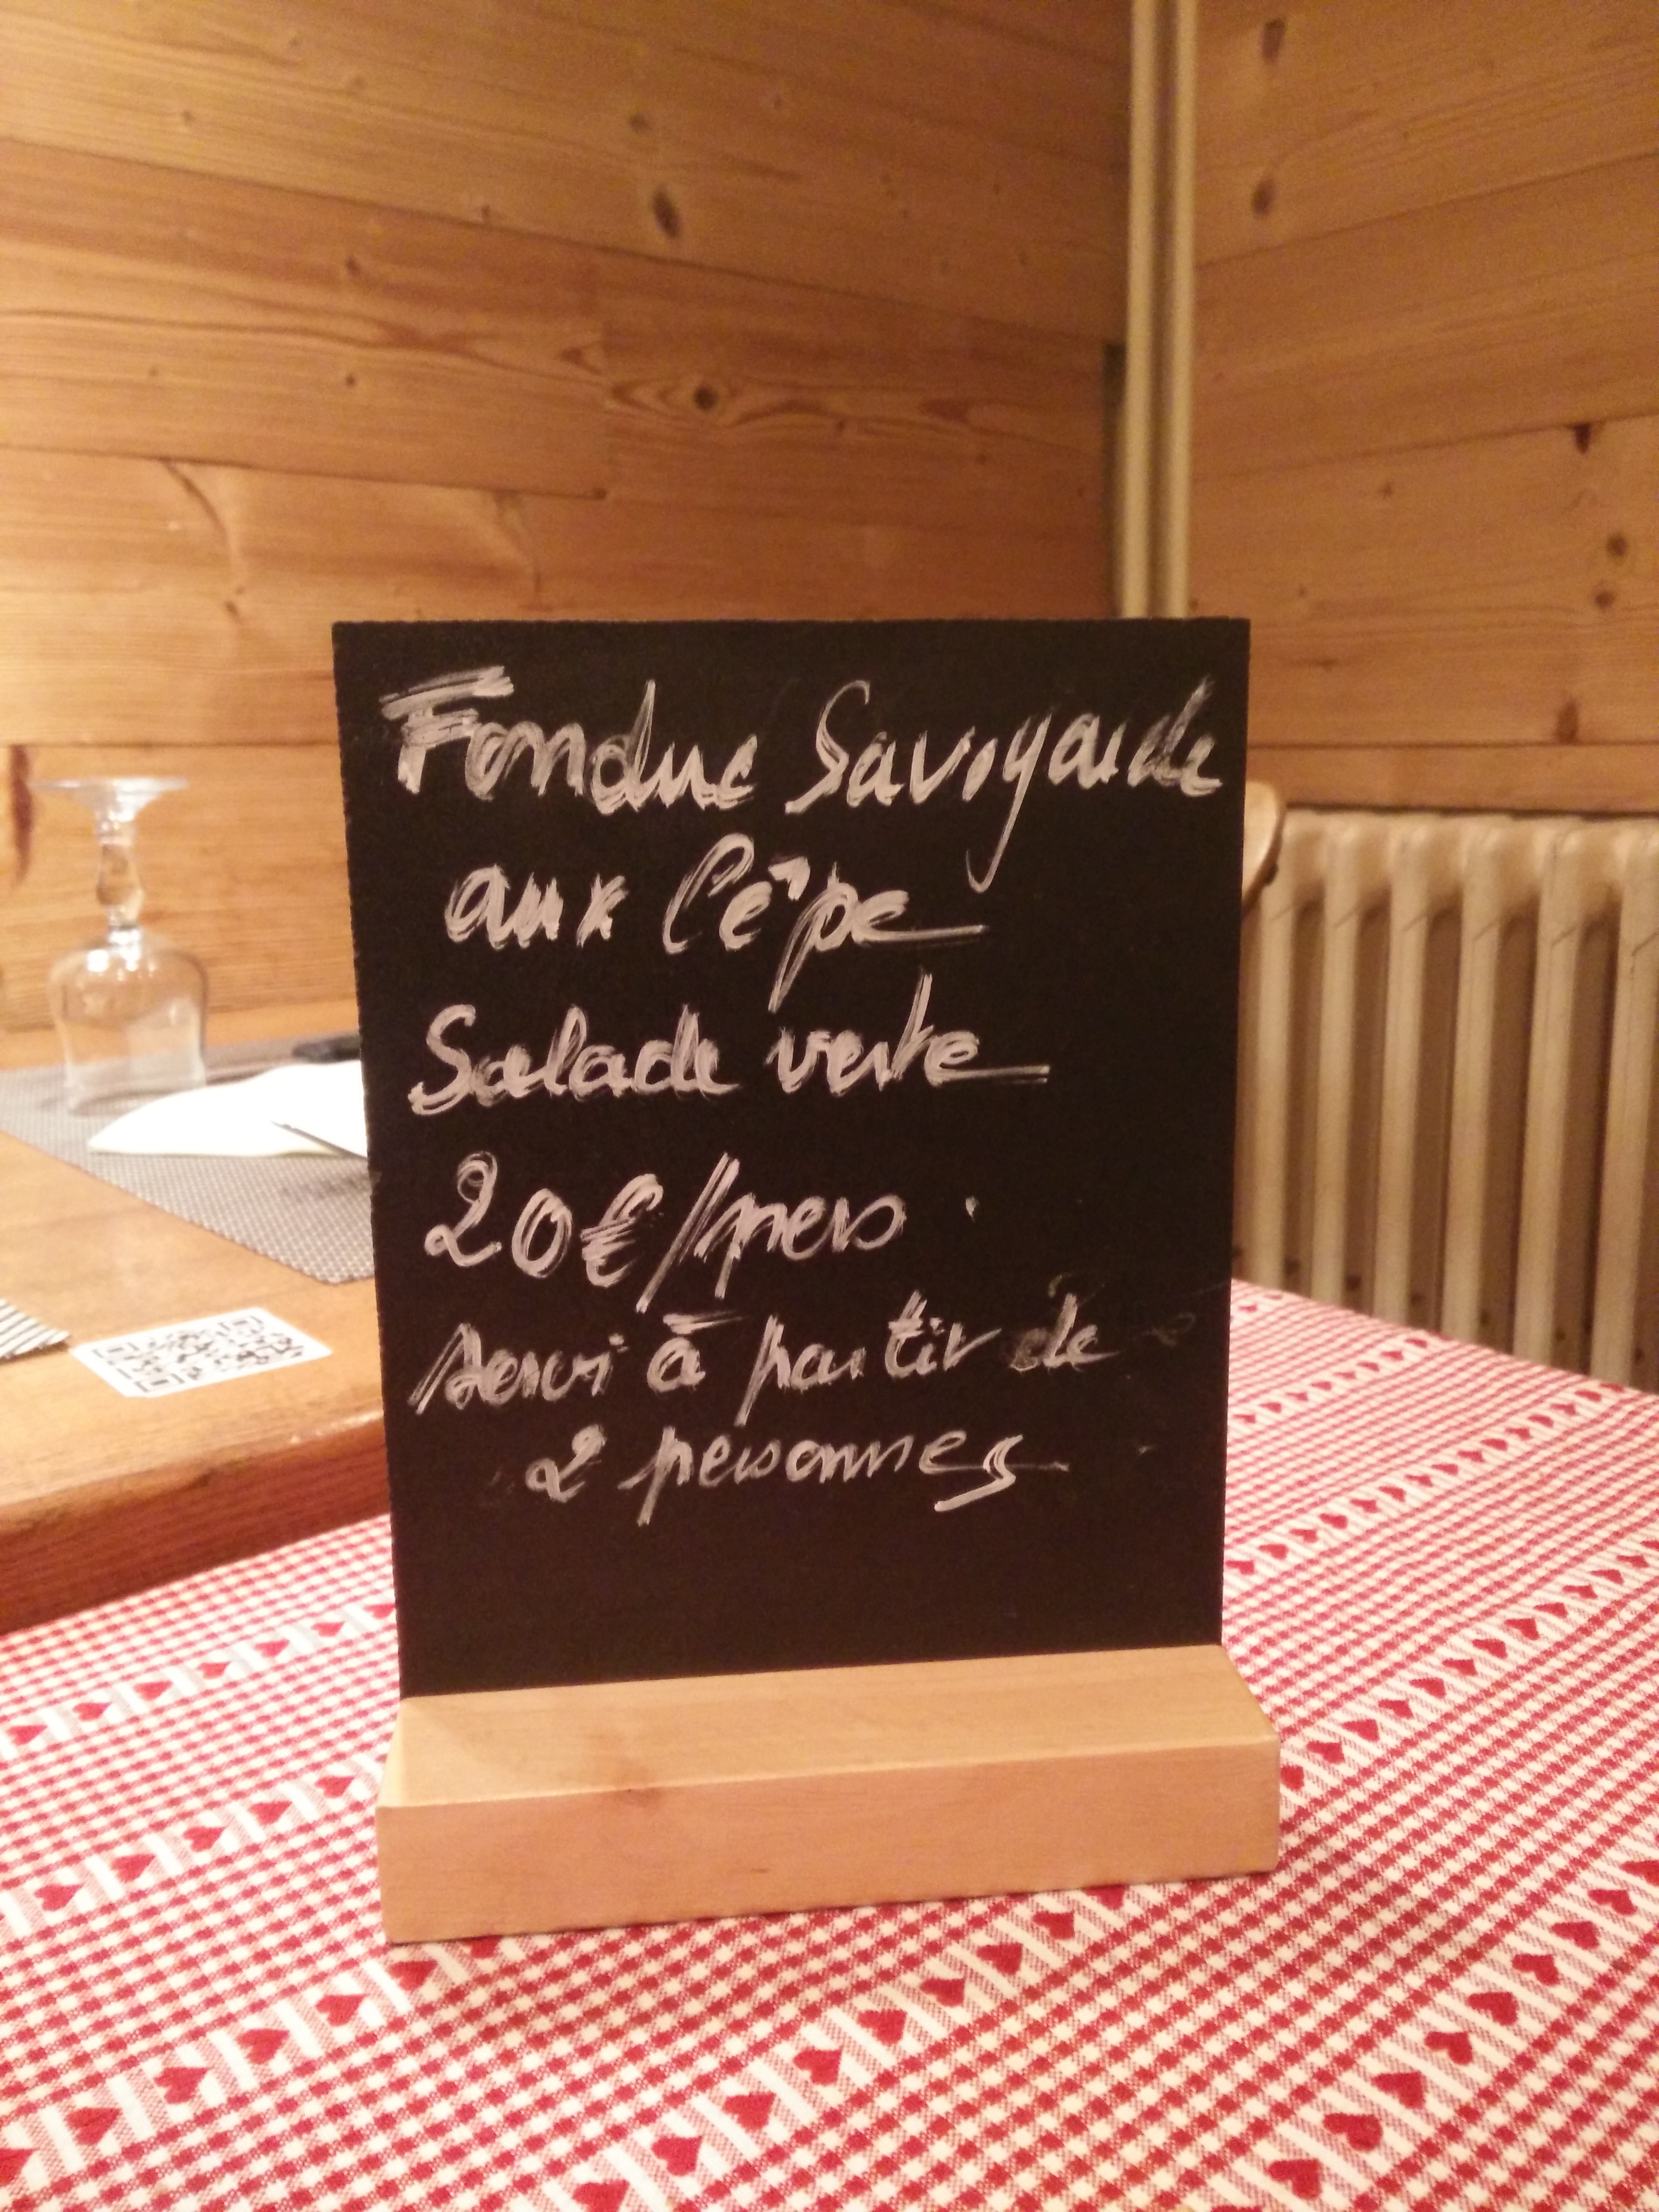 Fondue Savoyarde
aux Cêpe
Salade verte
20€/pers.
servi à partir de
2 personnes